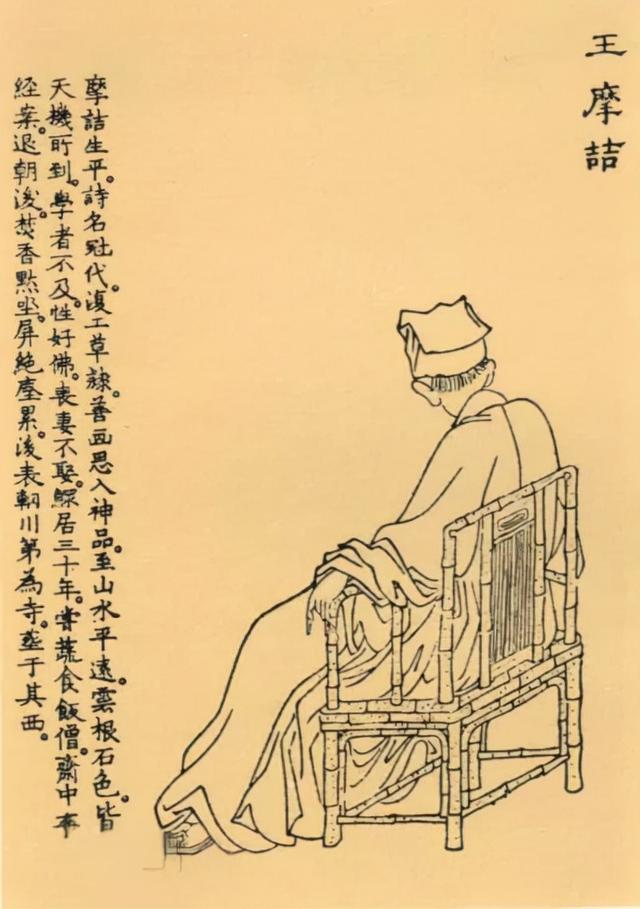 王摩詰
摩詰生平。詩名冠代。復工草隸。善画思入神品。至山水平遠。雲根石色。皆
天機所到。學者不及。性好佛。喪妻不娶。鰥居三十年。嘗蔬食飯僧。齋中
經案。退朝後。焚香點坐。屏絶塵累。後表輞川第為寺。葬于其西。